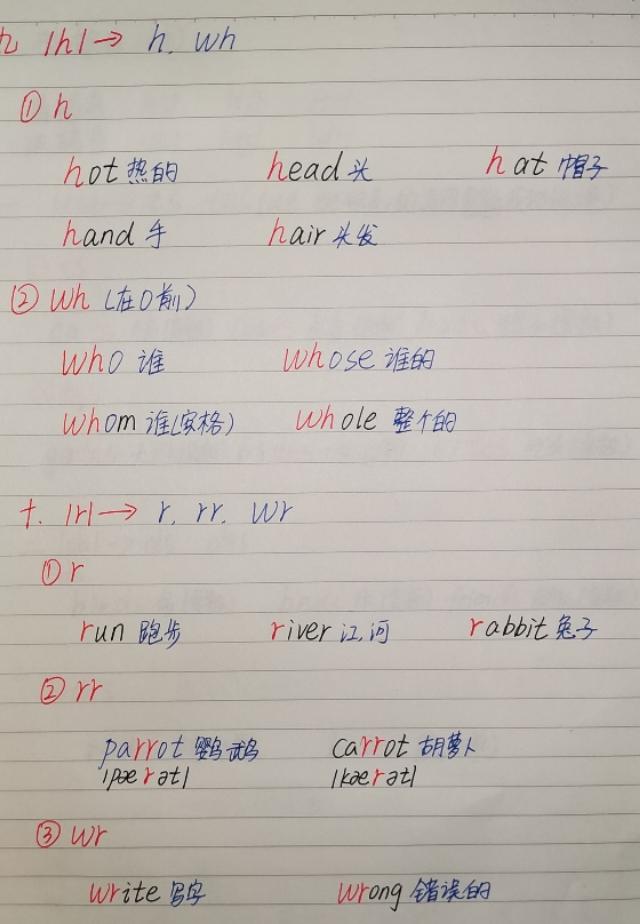 九 /h/→ h. wh
① h
hot 热的 head 头 hat 帽子
hand 手 hair 头发
② wh (在o前)
who 谁 whose 谁的
whom 谁(宾格) whole 整个的
十. /r/→ r. rr. wr
① r
run 跑步 river 江,河 rabbit 兔子
② rr
parrot 鹦鹉 carrot 胡萝卜
/pærət/ /kærət/
③ wr
write 写字 wrong 错误的